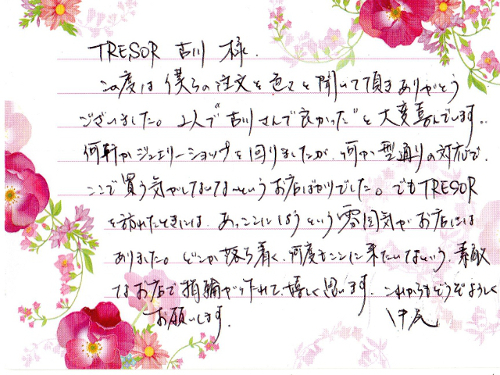 TRESOR 古川 様.
この度は僕らの注文を色々と聞いて頂きありがとう
ございました。2人で"古川さんで良かった"と大変喜んでいます.
何軒かジュエリーショップを回りましたが、何か型通りの対応で、
ここで買う気がしないな〜というお店ばかりでした。でもTRESOR
を訪れたときには、あっここにしようという雰囲気がお店には
ありました。どこか落ち着く、何度もここに来たいなという、素敵
なお店で指輪が作れて、嬉しく思います. これからもどうぞよろしく
お願いします.